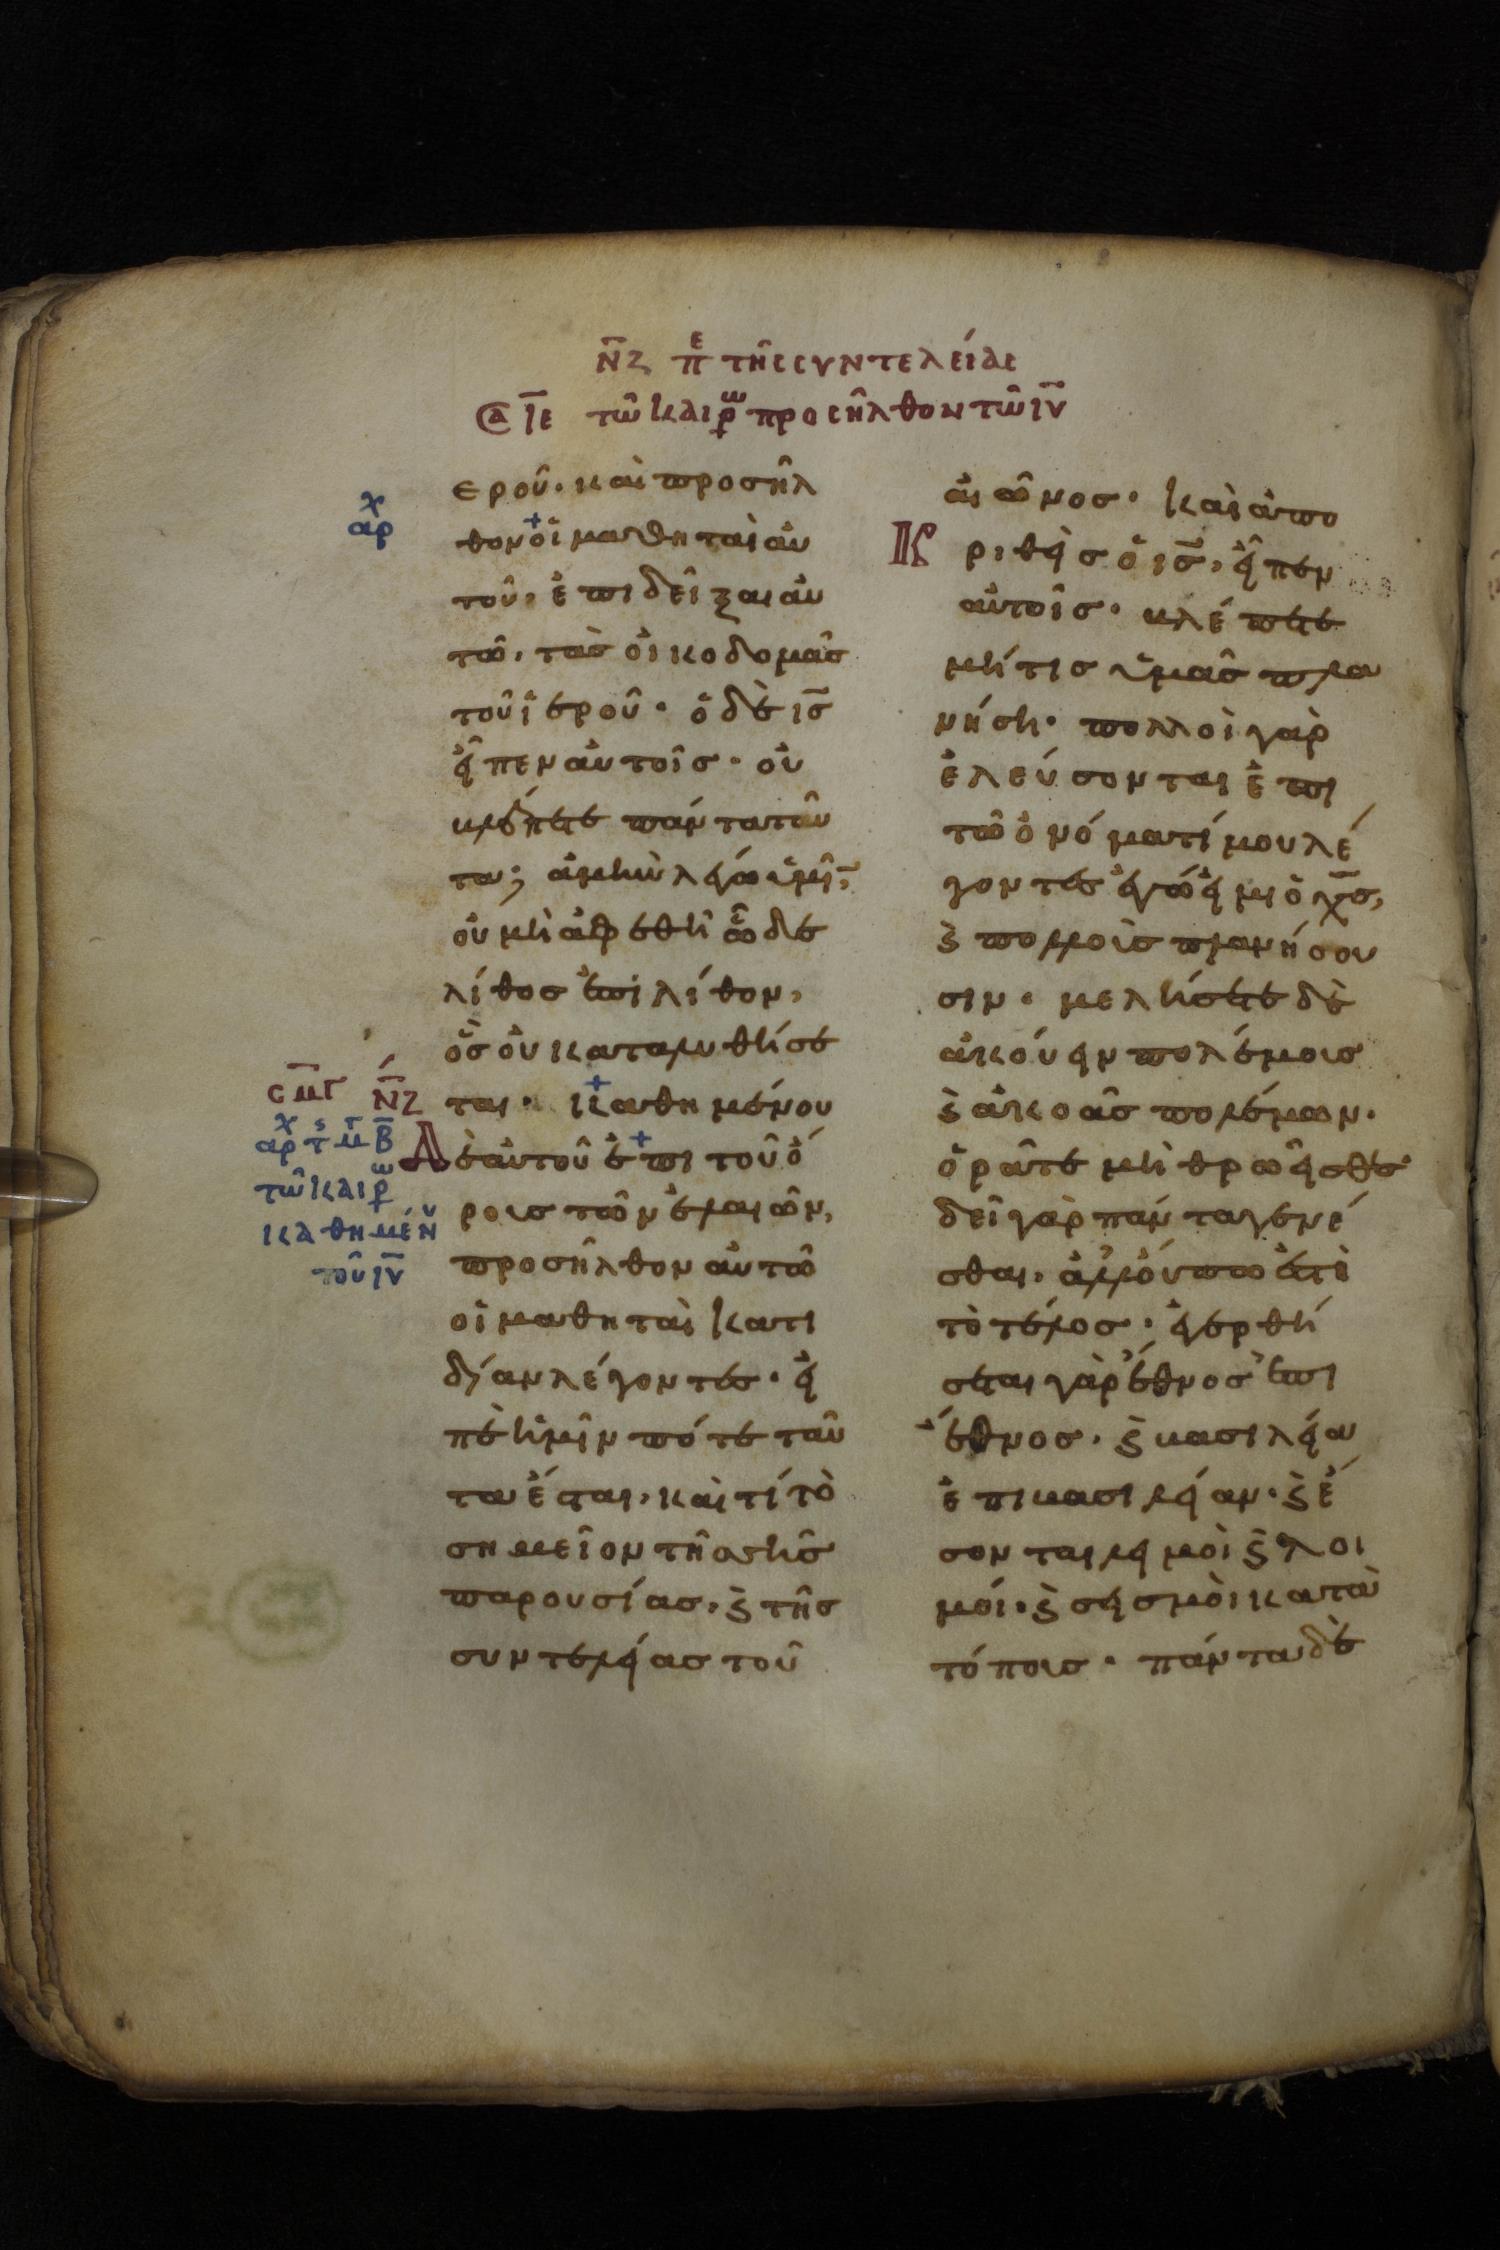 Ν̅Ζ πε τῆς συντελείας
Ⲁ ΙΕ τῶ καιρω προσῆλθον τῶ ιυ
αρχ
ερου̂· καὶ προσῆλ
θον οἱ μαθηταὶ αὐ
του̂, ἐπιδεῖξαι αὐ
τῶ, τὰς οἰκοδομὰς
τοῦ ἱεροῦ· ὁ δὲ ις
εἶπεν αὐτοῖς· οὐ
βλέπετε πάντα ταῦ
τα; ἀμὴν λέγω ὑμῖ,
οὐ μὴ ἀφεθῆ ὧδε
λίθος ἐπὶ λίθον,
ὃς οὐ καταλυθήσε
ται· Καθημένου
δὲ αὐτοῦ ἐπι τοῦ ὄ
ρους τῶν ἐλαιῶν,
προσῆλθον αὐτῶ
οἱ μαθηταὶ κατ ι
δίαν λέγοντες· εἰ
πὲ ἡμῖν πότε ταῦ
τα ἔσται, καὶ τί τὸ
σημεῖον τῆς σῆς
παρουσίας, ϗ τῆς
συντελείας τοῦ
σμγ Ν̅Ζ
αρχ τς μτ Β
τῶ καιρω
καθημένυ
τοῦ ιυ
αἰῶνος· Καὶ ἀπο
κριθεὶς ὁ ις, εἶπεν
αὐτοῖς· βλέπετε
μή τις ὑμᾶς πλα
νήση· πολλοὶ γὰρ
ἐλεύσονται ἐπι
τῶ ὀνόματί μου λέ
γοντες ἐγώ εἰμι ὁ χς,
ϗ πολλοὺς πλανήσου
σιν· μελήσετε δὲ
ἀκούειν πολέμους
ϗ ἀκοὰς πολέμων·
ὁρᾶτε μὴ θροεῖσθε
δεῖ γὰρ πάντα γενέ
σθαι, ἀλλ' οὔπω ἐστὶ
τὸ τέλος· ἐγερθή
σεται γὰρ ἔθνος ἐπι
ἔθνος· ϗ βασιλεία
ἐπι βασιλείαν· ϗ ἔ
σονται λιμοὶ ϗ λοι
μοί· ϗ σεισμοὶ κατὰ
τόπους· πάντα δὲ